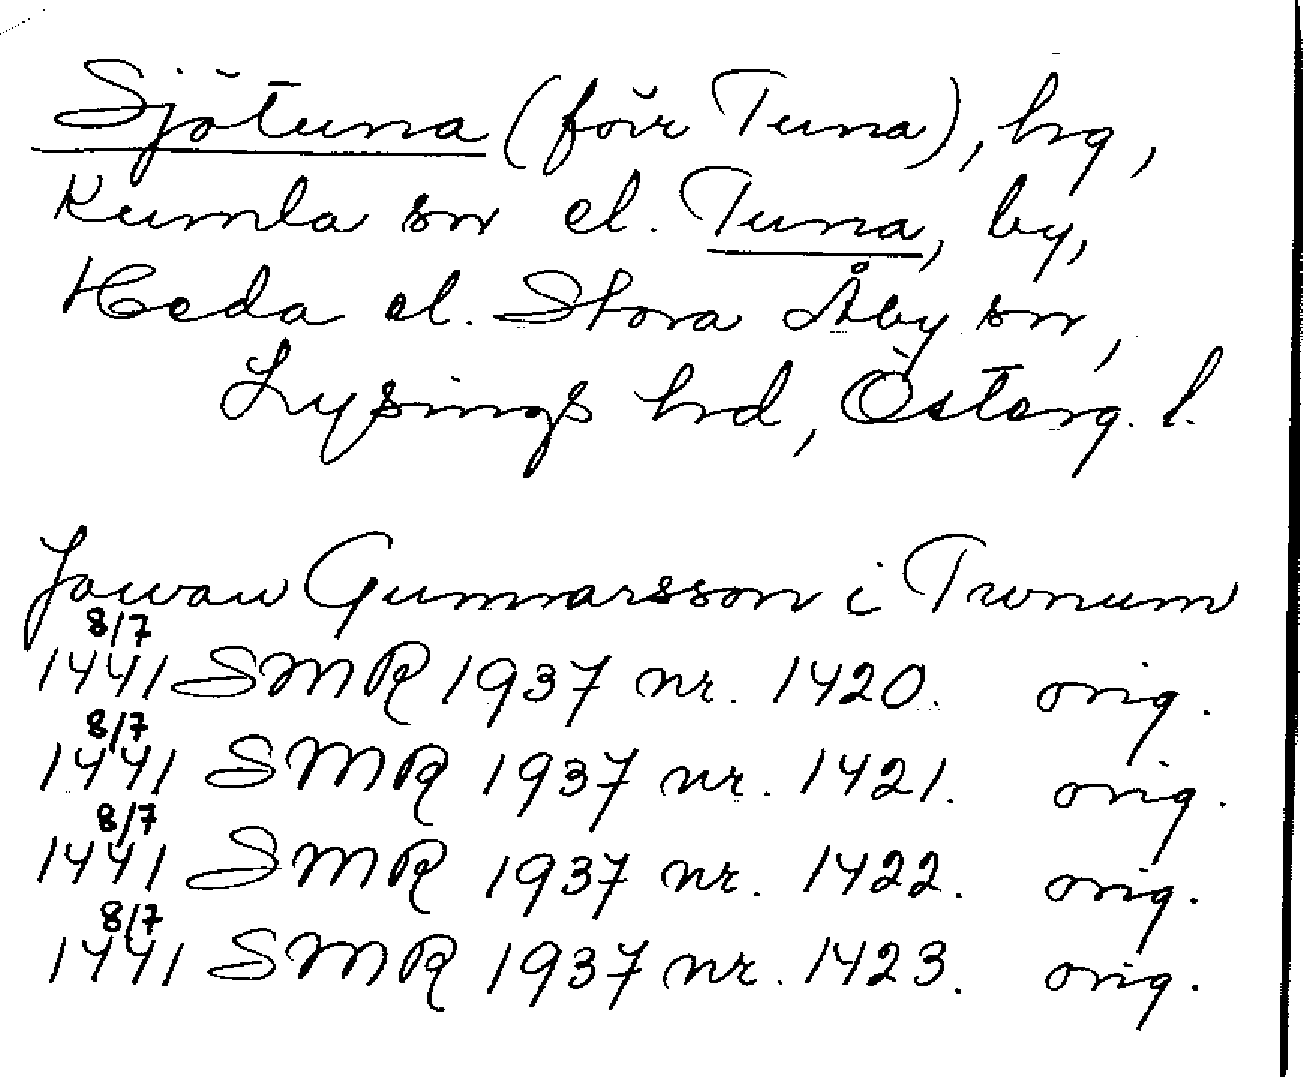 Sjötuna (förr Tuna), hg,
Kumla sn el. Tuna, by,
Heda el. Stora Åby sn,
Lysings hd, Österg. l.
Jowan Gunnarsson i Twnum
8/7
1441 SMR 1937 nr. 1420. orig.
8/7
1441 SMR 1937 nr. 1421. orig.
8/7
1441 SMR 1937 nr. 1422. orig.
8/7
1441 SMR 1937 nr. 1423. orig.